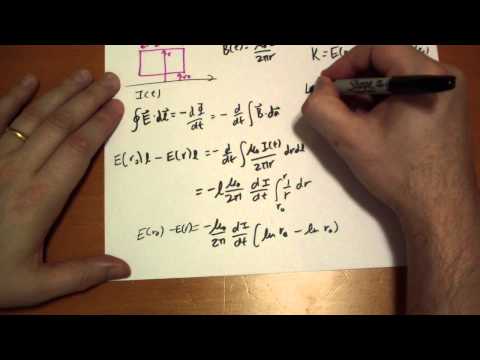 B(t) = μ₀
2πr
K = E(r
r₀
I(t)
∮E⃗·dl⃗ = -dΦ/dt = -d/dt ∫B⃗·da⃗
E(r₀)l - E(r)l = -d/dt ∫ μ₀I(t)/2πr dr dl
= -l μ₀/2π dI/dt ∫_{r₀}^{r} 1/r dr
E(r₀) - E(r) = -μ₀/2π dI/dt (ln r - ln r₀)
Sharpie